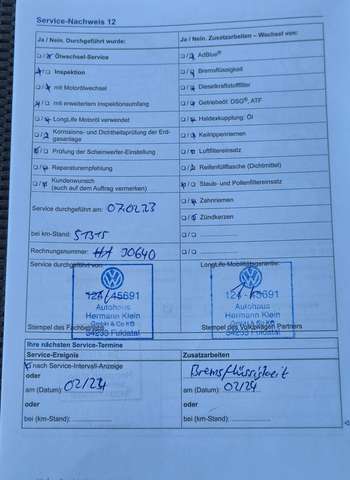 Service-Nachweis 12
Ja / Nein. Durchgeführt wurde:
Ölwechsel-Service
Inspektion
mit Motorölwechsel
mit erweitertem Inspektionsumfang
LongLife Motoröl verwendet
Korrosions- und Dichtheitsprüfung der Erd-
gasanlage
Prüfung der Scheinwerfer-Einstellung
Reparaturempfehlung
Kundenwunsch
(auch auf dem Auftrag vermerken)
Service durchgeführt am: 07.02.23
bei km-Stand: 51315
Rechnungsnummer: 00640
Service durchgeführt von:
Autohaus
Hermann Klein
GmbH & Co KG
34233 Fuldatal
Stempel des Fachbetriebs
Ja / Nein. Zusatzarbeiten – Wechsel von:
AdBlue®
Bremsflüssigkeit
Dieselkraftstofffilter
Getriebeöl: DSG®, ATF
Haldexkupplung: Öl
Keilrippenriemen
Luftfiltereinsatz
Reifenfüllflasche (Dichtmittel)
Staub- und Pollenfiltereinsatz
Zahnriemen
Zündkerzen
LongLife-Mobilitätsgarantie:
Autohaus
Hermann Klein
GmbH & Co KG
34233 Fuldatal
Stempel des Volkswagen Partners
Ihre nächsten Service-Termine
Service-Ereignis
nach Service-Intervall-Anzeige
oder
am (Datum): 02/24
oder
bei (km-Stand):
Zusatzarbeiten
Bremsflüssigkeit
am (Datum): 02/24
oder
bei (km-Stand):